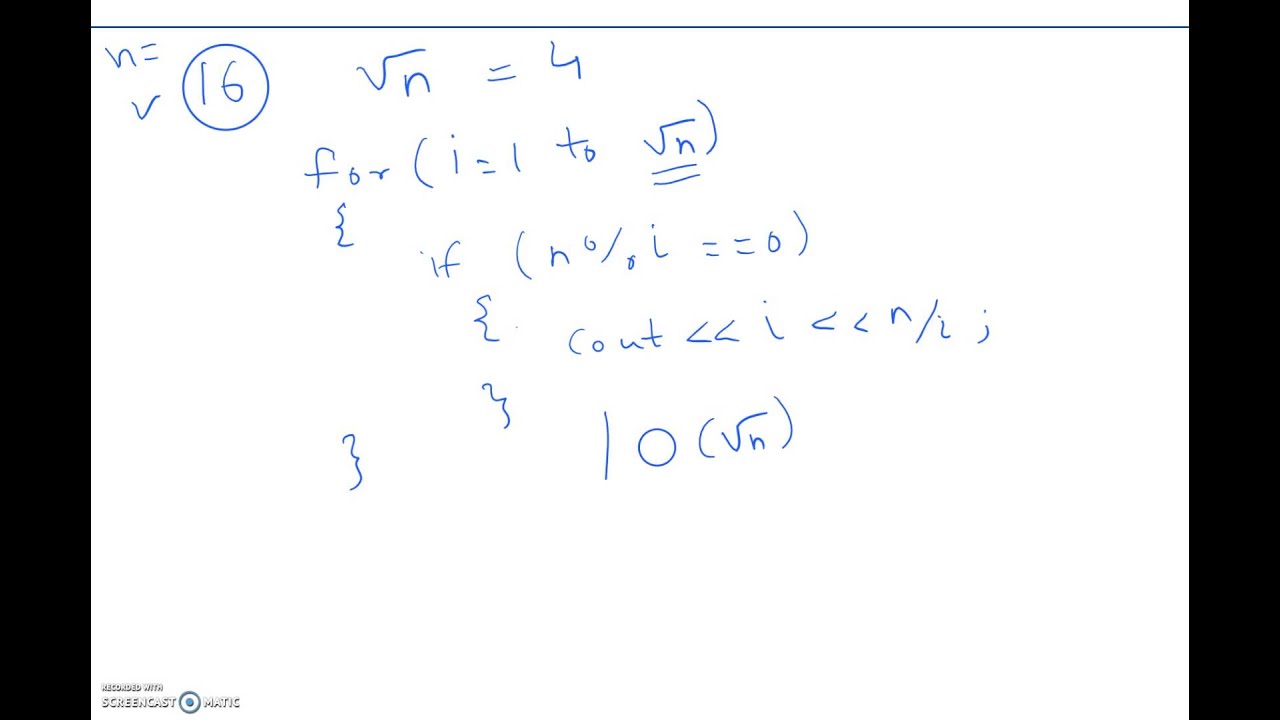 n= 16 √n = 4
√
for ( i=1 to √n )
{
if ( n % i == 0 )
{ cout << i << n/i ;
}
} | O (√n)
RECORDED WITH
SCREENCAST MATIC